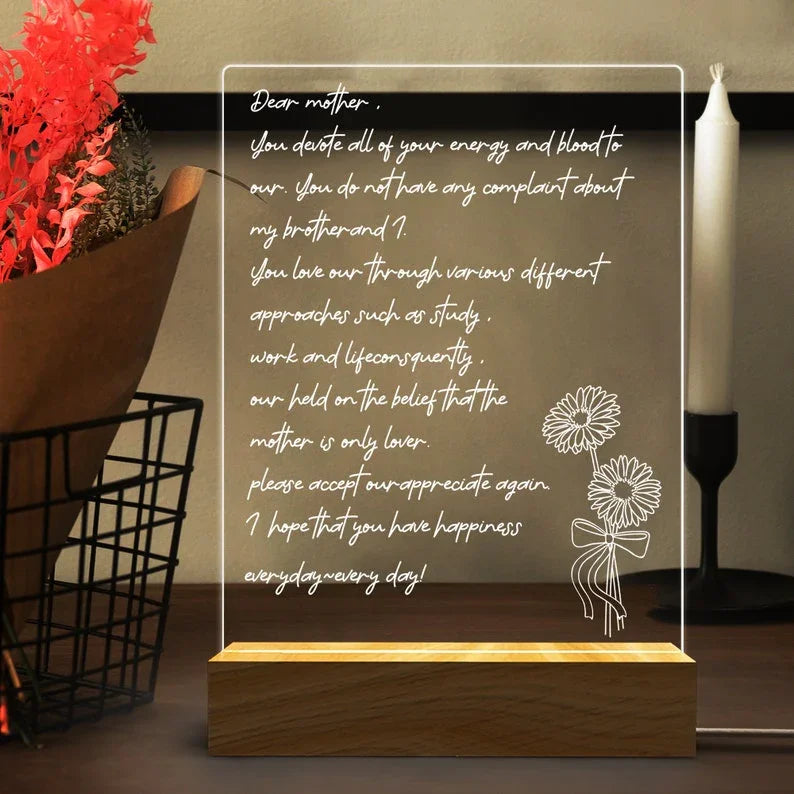 Dear mother ,
You devote all of your energy and blood to
our. You do not have any complaint about
my brotherand I.
You love our through various different
approaches such as study ,
work and lifeconsquently ,
our held on the belief that the
mother is only lover.
please accept our appreciate again.
I hope that you have happiness
everyday~every day!